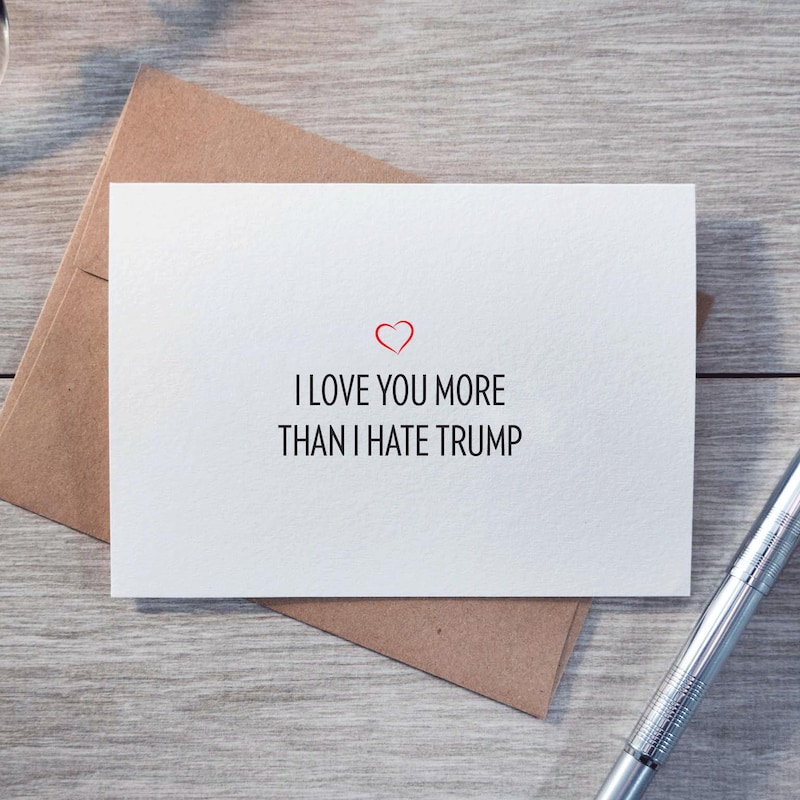 I LOVE YOU MORE
THAN I HATE TRUMP